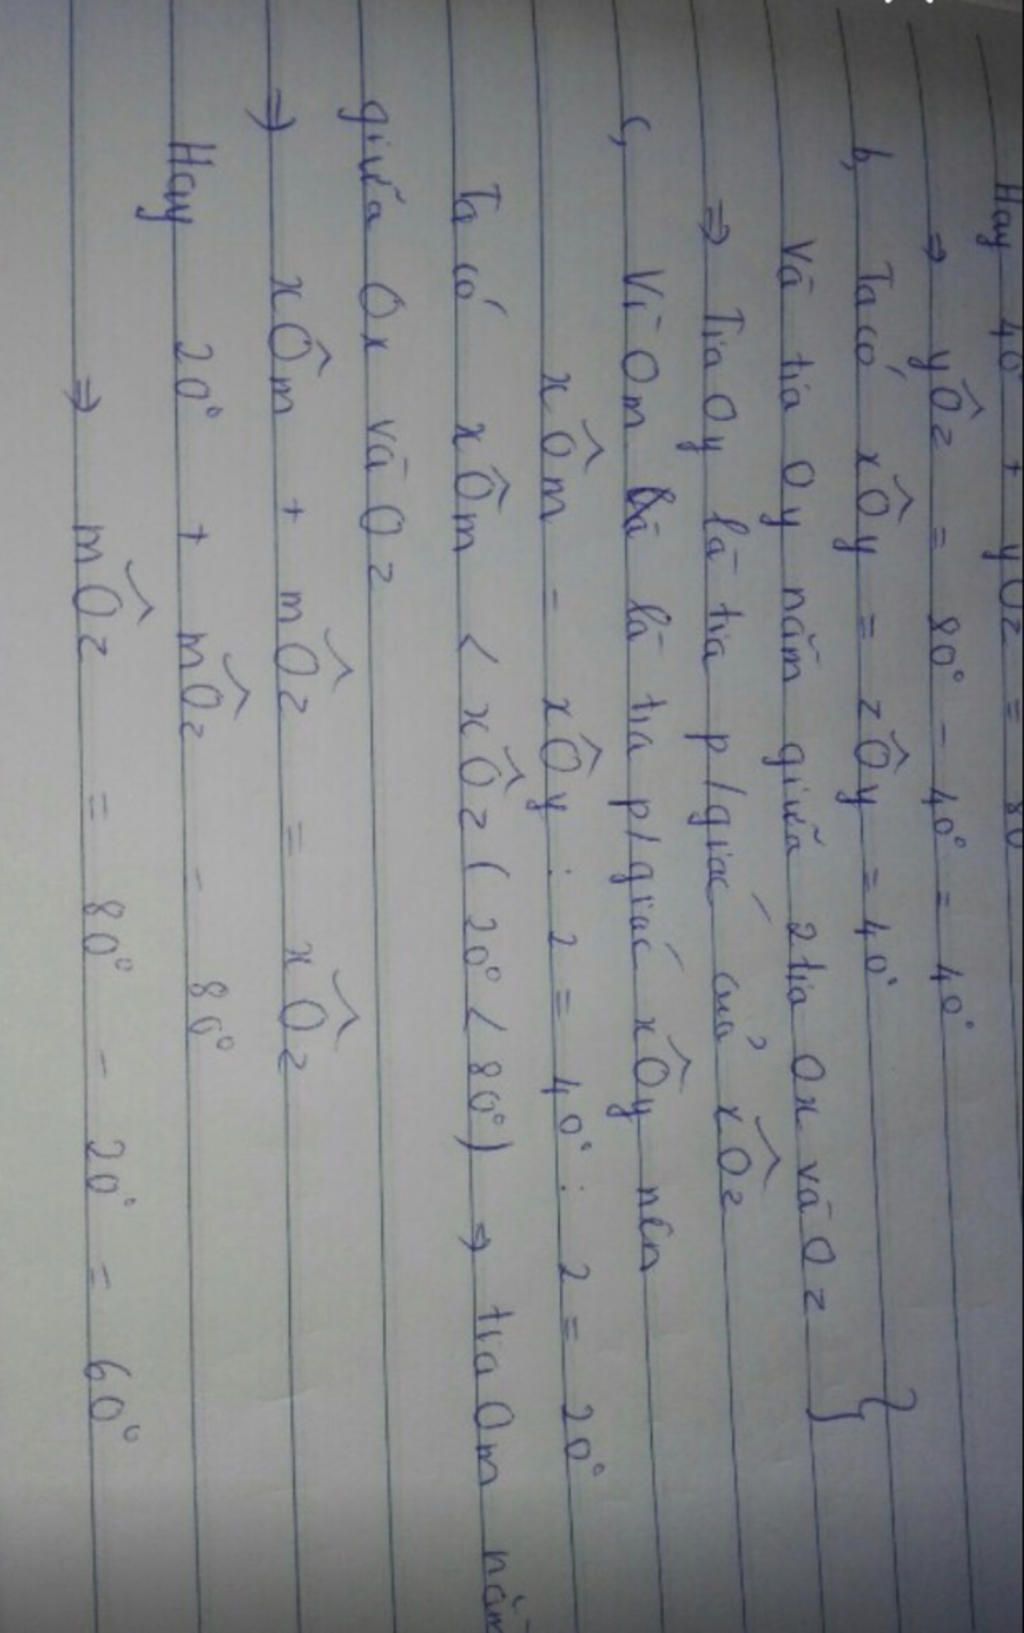 Hay 40° + yÔz = 80
⇒ yÔz = 80° - 40° = 40°
b, Ta có xÔy = zÔy = 40°
Và tia Oy nằm giữa 2 tia Ox và Oz }
⇒ Tia Oy là tia p/giác của xÔz
c, Vì Om là tia p/giác xÔy nên
xÔm = xÔy : 2 = 40° : 2 = 20°
Ta có xÔm < xÔz ( 20° < 80°) ⇒ tia Om nằm
giữa Ox và Oz
⇒ xÔm + mÔz = xÔz
Hay 20° + mÔz = 80°
⇒ mÔz = 80° - 20° = 60°